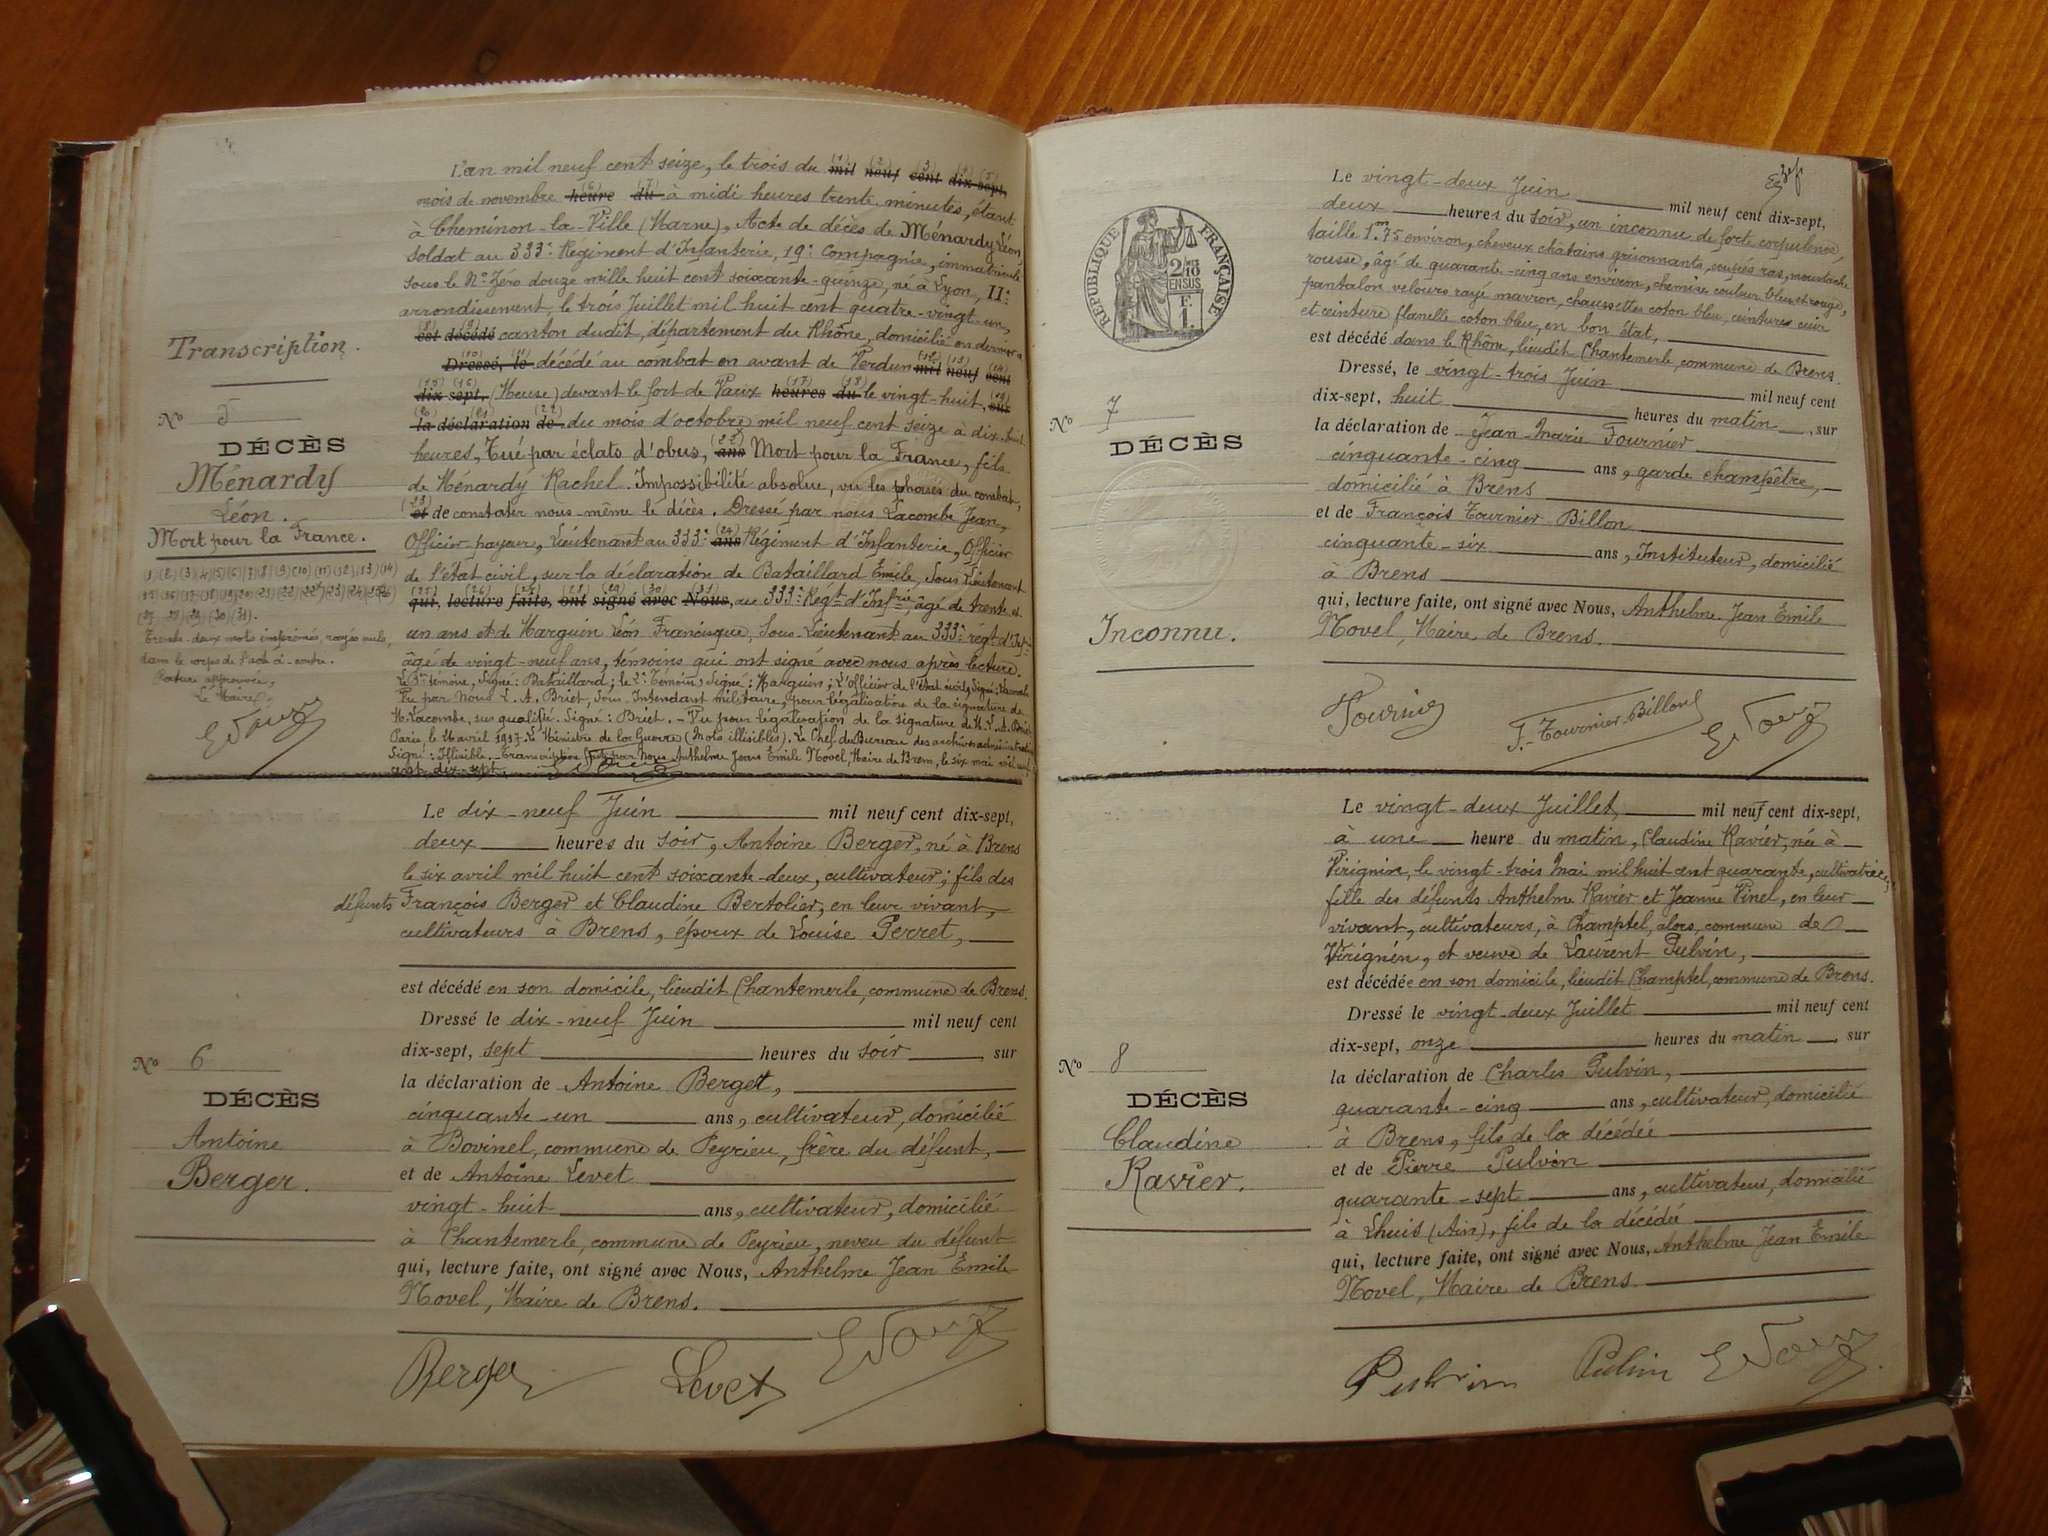 Transcription.
N° 5
DÉCÈS
Ménardy
Léon.
Mort pour la France.
(1)(2)(3)(4)(5)(6)(7)(8)(9)(10)(11)(12)(13)(14)
(29)(30)(31).
Trente-deux mots imprimés, rayés nuls,
dans le corps de l'acte ci-contre.
Rature approuvée,
Le Maire,
L'an mil neuf cent seize, le trois du mil neuf cent dix-sept,
mois de novembre heure du à midi heures trente minutes, étant
à Cheminon-la-Ville (Marne), Acte de décès de Ménardy Léon,
Soldat au 333e Régiment d'Infanterie, 19e Compagnie, immatriculé
sous le N° Zéro douze mille huit cent soixante-quinze, né à Lyon, IIe
arrondissement, le trois Juillet mil huit cent quatre-vingt-un,
est décédé canton dudit, département du Rhône, domicilié en dernier
Dressé, le décédé au combat en avant de Verdun mil neuf cent
dix sept, (Meuse) devant le fort de Vaux heures du le vingt-huit, sur
la déclaration de du mois d'octobre mil neuf cent seize à dix-huit
heures, Tué par éclats d'obus, ans Mort pour la France, fils
de Ménardy Rachel. Impossibilité absolue, vu les phases du combat,
et de constater nous-même le décès. Dressé par nous Lacombe Jean,
Officier payeur, Lieutenant au 333e ans Régiment d'Infanterie, Officier
de l'état civil, sur la déclaration de Bataillard Emile, Sous Lieutenant
qui, lecture faite, ont signé avec Nous, au 333e Régt d'Infrie âgé de trente et
un ans et de Marguin Léon Francisque, Sous-Lieutenant au 333e régt d'Inf
âgé de vingt-neuf ans, témoins qui ont signé avec nous après lecture.
Le 1er témoin, Signé: Bataillard; le 2e Témoin, Signé: Marguin; L'Officier de l'état civil, Signé: Lacombe
Vu par Nous L. A. Briet, Sous Intendant militaire, pour légalisation de la signature de
M. Lacombe, sus qualifié. Signé: Briet. - Vu pour légalisation de la signature de M. L. A. Briet
Paris, le 11 avril 1917. Le Ministre de la Guerre (Mots illisibles). Le Chef du Bureau des archives administratives
Signé: Illisible. - Transcription faite par Nous Anthelme Jean Emile Novel, Maire de Brens, le six mai mil neuf
cent dix-sept.
N° 6
DÉCÈS
Antoine
Berger.
Le dix-neuf Juin mil neuf cent dix-sept,
deux heures du soir, Antoine Berger, né à Brens
le six avril mil huit cent soixante-deux, cultivateur; fils des
défunts François Berger et Claudine Bertolier, en leur vivant,
cultivateurs à Brens, époux de Louise Perret,
est décédé en son domicile, lieudit Chantemerle, commune de Brens.
Dressé le dix-neuf Juin mil neuf cent
dix-sept, sept heures du soir, sur
la déclaration de Antoine Berger,
cinquante-un ans, cultivateur, domicilié
à Bovinel, commune de Peyrieu, frère du défunt,
et de Antoine Levet
vingt-huit ans, cultivateur, domicilié
à Chantemerle, commune de Peyrieu, neveu du défunt
qui, lecture faite, ont signé avec Nous, Anthelme Jean Emile
Novel, Maire de Brens.
Berger Levet
RÉPUBLIQUE FRANÇAISE
2/10 EN SUS
F.
1.
N° 7
DÉCÈS
Inconnu.
Le vingt-deux Juin mil neuf cent dix-sept,
deux heures du soir, un inconnu de forte corpulence,
taille 1m75 environ, cheveux châtains grisonnants, coupés ras, moustache
rousse, âgé de quarante-cinq ans environ, chemise couleur bleu et rouge,
pantalon velours rayé marron, chaussettes coton bleu, ceintures cuir
et ceinture flanelle coton bleu, en bon état,
est décédé dans le Rhône, lieudit Chantemerle, commune de Brens.
Dressé, le vingt-trois Juin mil neuf cent
dix-sept, huit heures du matin, sur
la déclaration de Jean-Marie Fournier
cinquante-cinq ans, garde champêtre,
domicilié à Brens
et de François Tournier Billon
cinquante-six ans, Instituteur, domicilié
à Brens
qui, lecture faite, ont signé avec Nous, Anthelme Jean Emile
Novel, Maire de Brens.
Fournier F. Tournier-Billon
N° 8
DÉCÈS
Claudine
Ravier.
Le vingt-deux Juillet, mil neuf cent dix-sept,
à une heure du matin, Claudine Ravier, née à
Virignin, le vingt-trois Mai mil huit cent quarante, cultivatrice,
fille des défunts Anthelme Ravier et Jeanne Vinel, en leur
vivant, cultivateurs, à Champtel, alors commune de
Virignin, et veuve de Laurent Pulvin,
est décédée en son domicile, lieudit Champtel, commune de Brens.
Dressé le vingt-deux Juillet mil neuf cent
dix-sept, onze heures du matin, sur
la déclaration de Charles Pulvin,
quarante-cinq ans, cultivateur, domicilié
à Brens, fils de la décédée
et de Pierre Pulvin
quarante-sept ans, cultivateur, domicilié
à Lhuis (Ain), fils de la décédée
qui, lecture faite, ont signé avec Nous, Anthelme Jean Emile
Novel, Maire de Brens.
Pulvin Pulvin